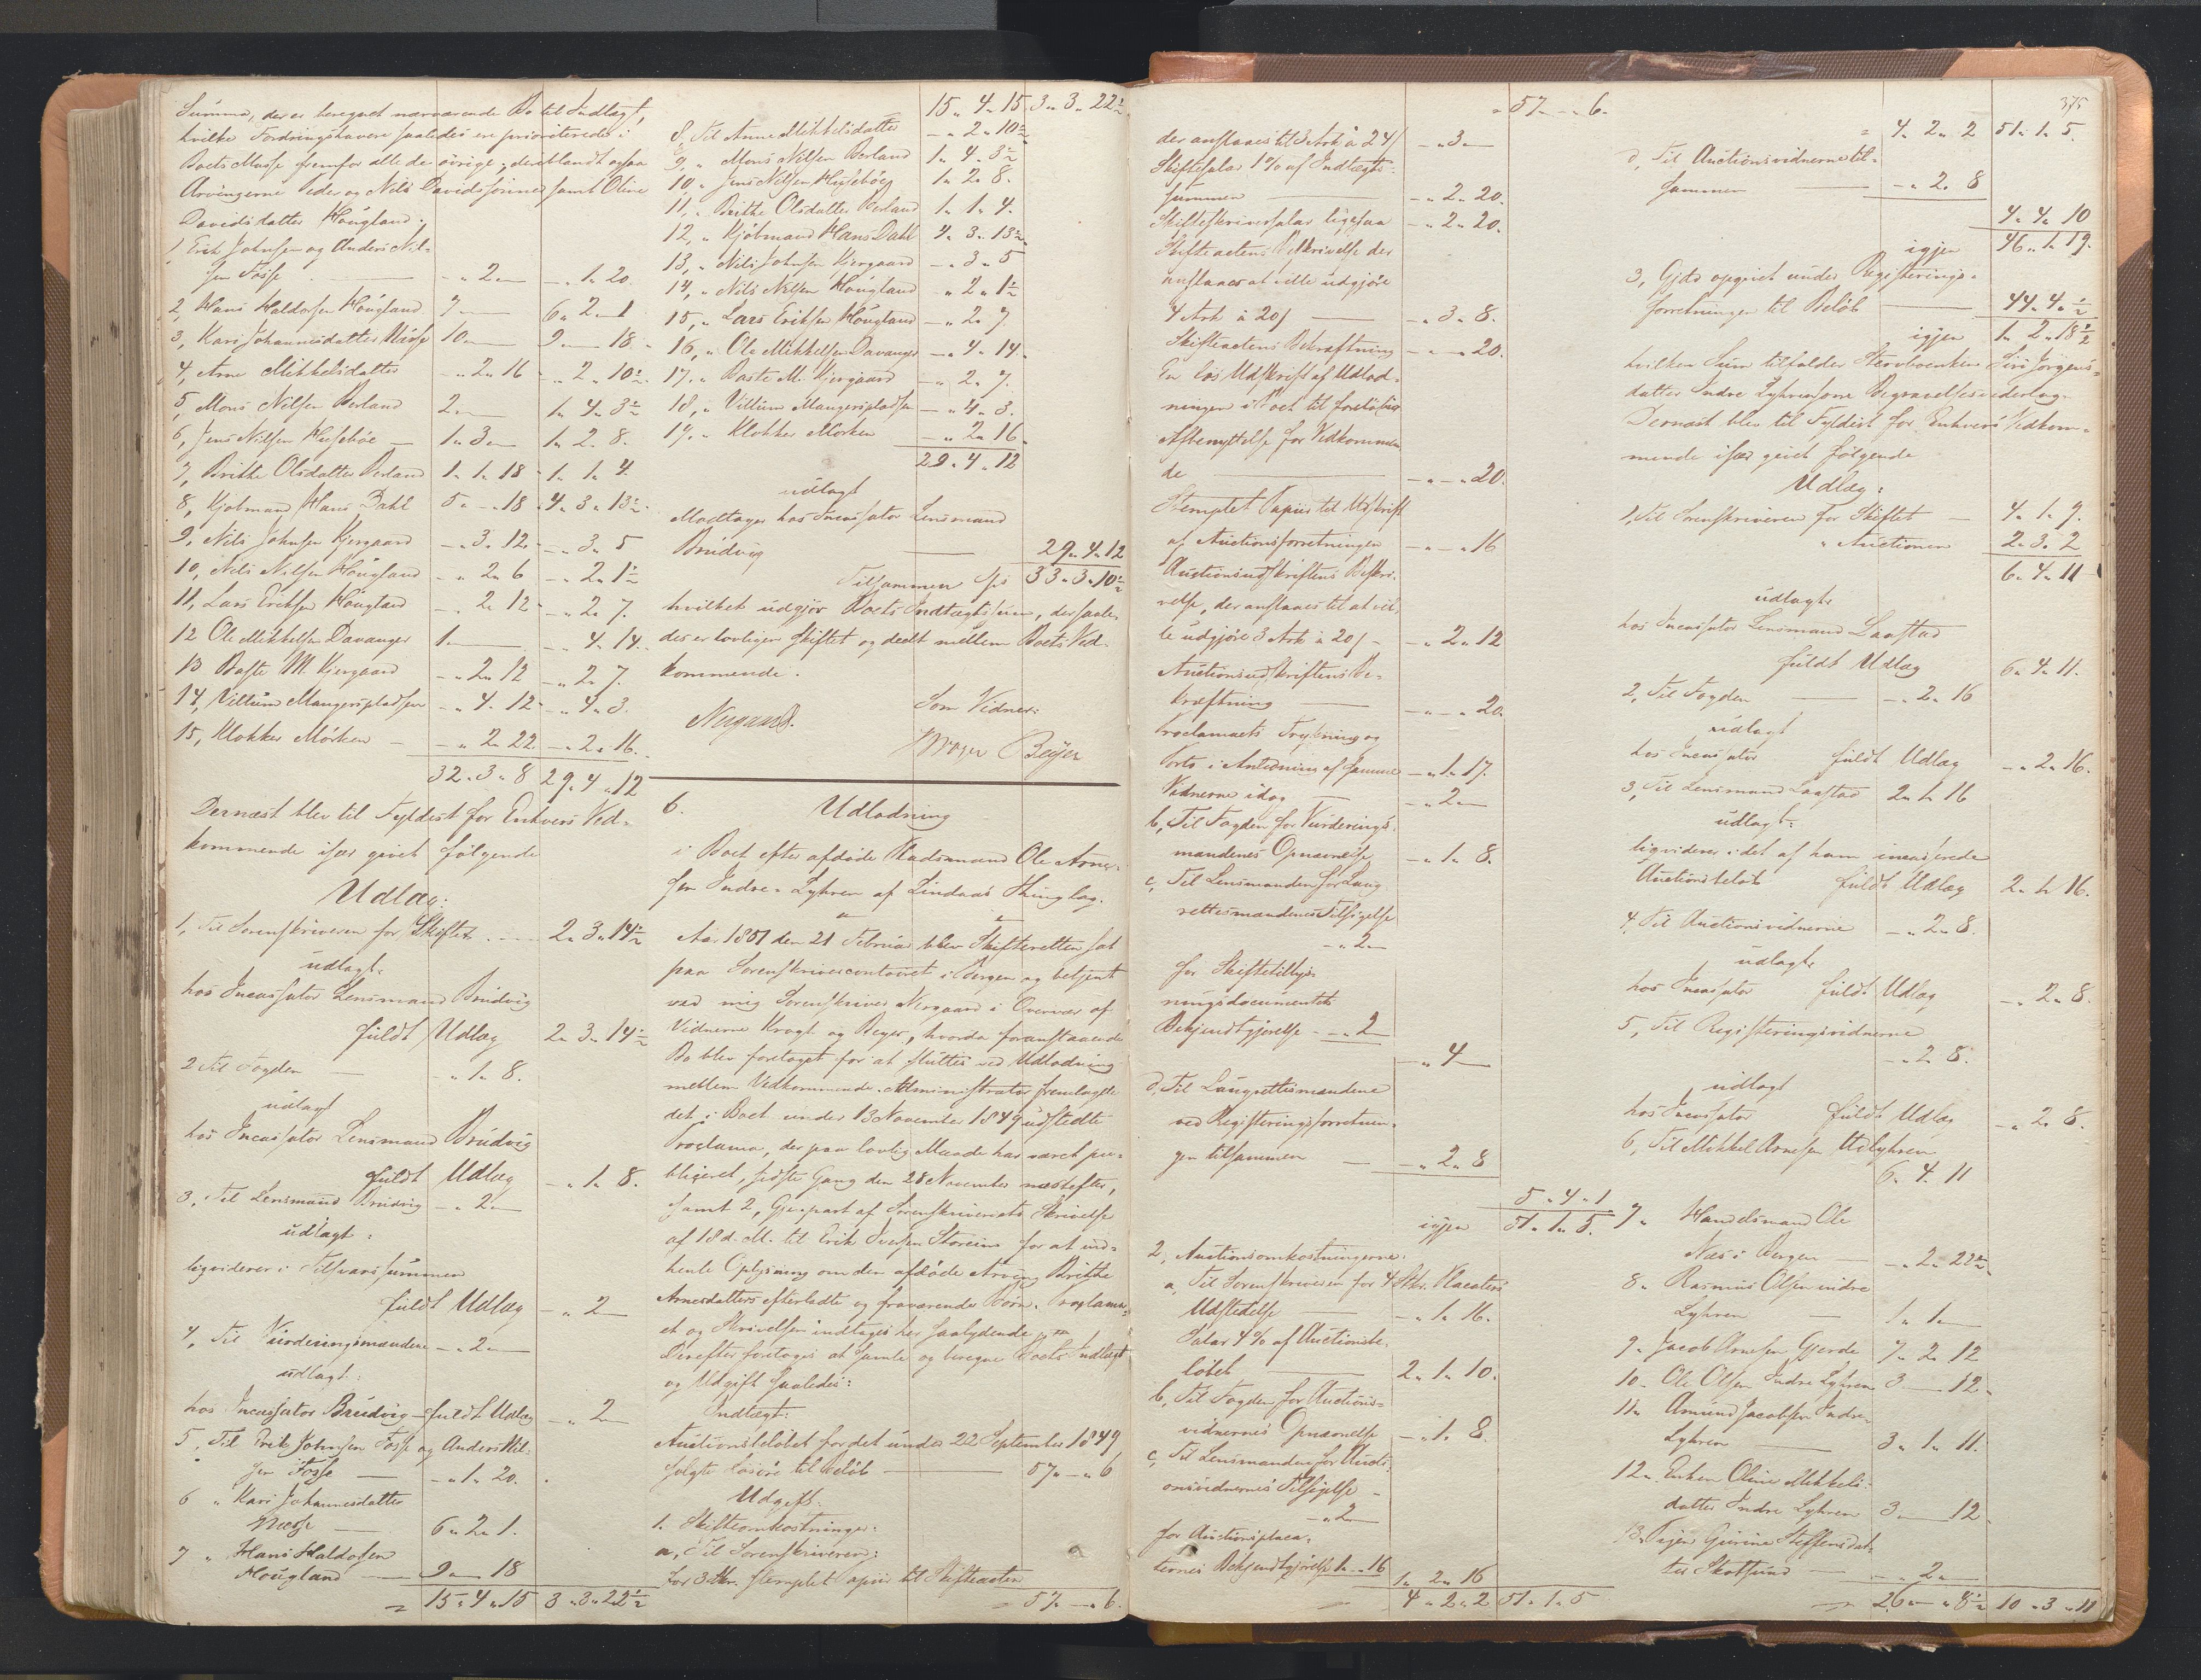 Summa, der er beregnet nærværende Bo til Indtægt,
hvilke Fordringshavere saaledes ere prioriterede i
Boets Masse fremfor alle de øvrige, deriblandt ogsaa
Arvingerne Peder og Nils Davidssønner samt Oline
Davidsdatter Hougland:
1, Erik Johnsen og Anders Nil-
sen Fosse - „ 2 „ — - „ 1 „ 20.
2, Hans Haldorsen Hougland 7 „ — 6 „ 2 „ 1
3, Kari Johannesdatter Næsse 10 „ — 9 „ — 18.
4, Arne Mikkelsdatter - „ 2 „ 16 - „ 2 „ 10½.
5, Mons Nilsen Berland 2 „ — 1 „ 4 „ 3½
6, Jens Nilsen Husebøe — 1 „ 3 „ — 1 „ 2 „ 8.
7, Brithe Olsdatter Berland 1 „ 1 „ 18 1 „ 1 „ 4.
8, Kjøbmand Hans Dahl 5 „ - „ 18 4 „ 3 „ 13½.
9, Nils Johnsen Kjergaard - „ 3 „ 12 - „ 3 „ 5
10, Nils Nilsen Hougland - „ 2 „ 6 - „ 2 „ 1½
11, Lars Eriksen Hougland - „ 2 „ 12 - „ 2 „ 7.
12 Ole Mikkelsen Davanger 1 „ — - „ 4 „ 14.
13 Baste M. Kjergaard - „ 2 „ 12 - „ 2 „ 7.
14, Villum Mangerspladsen - „ 4 „ 12 - „ 4 „ 3.
15, Klokker Mørken — - „ 2 „ 22 - „ 2 „ 16.
32 „ 3 „ 8 29 „ 4 „ 12
Dernæst blev til Fyldest for Enhvers Ved-
kommende især givet følgende
Udlæg:
1, Til Sorenskriveren for Skiftet 2 „ 3 „ 14½
udlagt:
hos Incassator Lensmand Brudvig
fuldt Udlæg 2 „ 3 „ 14½
2 Til Fogden — - „ 1 „ 8.
udlagt
hos Incassator Lensmand Brudvig
fuldt Udlæg - „ 1 „ 8.
3, Til Lensmand Brudvig - „ 2 „ —
udlagt:
liqviderer i Tilsvarssummen
fuldt Udlæg - „ 2 —
4, Til Vurderingsmændene - „ 2 „ —
udlagt:
hos Incassator Brudvig — fuldt Udlæg - „ 2 —
5, Til Erik Johnsen Fosse og Anders Nil-
sen Fosse — - „ 1 „ 20.
6 „ Kari Johannesdatter
Næsse — 6 „ 2 „ 1.
7 „ Hans Haldorsen
Hougland — 9 „ — 18
= 15 „ 4 „ 15 3 „ 3 „ 22½
15 „ 4 „ 15 3 „ 3 „ 22½
8, Til Anne Mikkelsdatter - „ 2 „ 10½
9, „ Mons Nilsen Berland 1 „ 4 „ 3½
10, „ Jens Nilsen Husebøe 1 „ 2 „ 8.
11, „ Brithe Olsdatter Berland 1 „ 1 „ 4.
12, „ Kjøbmand Hans Dahl 4 „ 3 „ 13½
13, „ Nils Johnsen Kjergaard - „ 3 „ 5
14, „ Nils Nilsen Hougland - „ 2 „ 1½
15, „ Lars Eriksen Hougland - „ 2 „ 7.
16, „ Ole Mikkelsen Davanger - „ 4 „ 14.
17, „ Baste M. Kjergaard - „ 2 „ 7.
18, „ Villum Mangerspladsen - „ 4 „ 3.
19, „ Klokker Mørken - „ 2 „ 16
29 „ 4 „ 12
udlagt
Modtages hos Incassator Lensmand
Brudvig — 29 „ 4 „ 12
Tilsammen Spd 33 „ 3 „ 10½
hvilket udgjør Boets Indtægtssum, der saale-
des er lovligen skiftet og deelt mellem Boets Ved-
kommende.
Som Vidner:
Nergaard. Krogh Beyer
6. Udlodning
i Boet efter afdøde Pladsmand Ole Arne-
sen Indre-Lyhren af Lindaas Thinglag.
Aar 1851 den 21 Februar blev Skifteretten sat
paa Sorenskrivercontoiret i Bergen og betjent
ved mig Sorenskriver Nergaard i Overvær af
Vidnerne Krogh og Beyer, hvorda foranstaaende
Bo blev foretaget for at sluttes ved Udlodning
mellem Vedkommende. Administrator fremlagde
det i Boet under 13 November 1849 udstedte
Proclama, der paa lovlig Maade har været pu-
bligeret, sidste Gang den 28 November næstefter,
samt 2, Gjenpart af Sorenskriveriets Skrivelse
af 18 d. M. til Erik Iversen Storeim for at ind-
hente Oplysning om den afdøde Arving Brithe
Arnesdatters efterladte og fraværende Børn. Proclama-
et og Skrivelsen indtages her saalydende
Derefter foretoges at samle og beregne Boets Indtægt
og Udgift saaledes:
Indtægt:
Auctionsbeløbet for det under 22 September 1849
solgte Løsøre til Beløb — 57 „ — „ 6
Udgift:
1. Skifteomkostninger:
a, Til Sorenskriveren:
for 3 Ark stemplet Papiir til Skifteacten
= 57 „ — „ 6.
= 57 „ — „ 6.
der anslaaes til 3 Ark à 24 s - „ 3 „ —
Skiftesalar 1 % af Indtægts-
summen — - „ 2 „ 20.
Skifteskriversalar ligesaa - „ 2 „ 20.
Skifteactens Beskrivelse der
anslaaes at ville udgjøre
4 Ark à 20 s — - „ 3 „ 8.
Skifteactens Bekræftning - „ — „ 20.
En løs Udskrift af Udlod-
ningen i Boet til foreløbig
Afbenyttelse for Vedkommen-
de — - „ - „ 20.
Stemplet Papiir til Udskrift
af Auctionsforretningen - „ — „ 16
Auctionsudskriftens Beskri-
velse, der anslaaes til at vil-
le udgjøre 3 Ark à 20 s - - „ 2 „ 12
Auctionsudskriftens Be-
kræftning — - „ - „ 20
Proclamaets Trykning og
Porto i Anledning af samme - „ 1 „ 17.
Vidnerne idag — - „ 2 „ —
b, Til Fogden for Vurderings-
mændenes Opnævnelse - „ 1 „ 8.
c, Til Lensmanden for Laug-
rettesmændenes Tilsigelse
- „ 2 —
for Skiftetilbye-
ningsdocumentets
Bekjendtgjørelse - „ 2
- „ 4 —
d, Til Laugrettesmændene
ved Registreringsforretnin-
gen tilsammen — - „ 2 „ 8
5 „ 4 „ 1.
igjen 51 „ 1 „ 5.
2, Auctionsomkostningerne:
a, Til Sorenskriveren for 4 Stkr. Placaters
Udstedelse — - „ 1 „ 16.
Salar 4 % af Auctionsbe-
løbet — 2 „ 1 „ 10.
b, Til Fogden for Auctions-
vidnernes Opnævnelse - „ 1 „ 8.
c, Til Lensmanden for Aucti-
onsvidnernes Tilsigelse -
- „ 2 —
for Auctionsplaca-
ternes Bekjendtgjørelse 1 „ - „ 16
1 „ 2 „ 16
= 4 „ 2 „ 2 51 „ 1 „ 5
375
= 4 „ 2 „ 2 51 „ 1 „ 5.
d, Til Auctionsvidnerne til-
sammen — - „ 2 „ 8
4 „ 4 „ 10
igjen 46 „ 1 „ 19.
3, Gjæld opgivet under Registrerings-
forretningen til Beløb — 44 „ 4 „ ½
igjen 1 „ 2 „ 18½
hvilken Sum tilfalder Stervboenken Siri Jørgens-
datter Indre Lyhren som Begravelsesvederlag.
Dernæst blev til Fyldest for Enhvers Vedkom-
mende især givet følgende
Udlæg:
1, Til Sorenskriveren for Skiftet — 4 „ 1 „ 9.
„ Auctionen 2 „ 3 „ 2
6 „ 4 „ 11
udlagt:
hos Incassator Lensmand Laastad
fuldt Udlæg 6 „ 4 „ 11.
2, Til Fogden — - „ 2 „ 16
udlagt
hos Incassator fuldt Udlæg - „ 2 „ 16.
3, Til Lensmand Laastad 2 „ 1 „ 16
udlagt:
liqviderer i det af ham incasserede
Auctionsbeløb fuldt Udlæg 2 „ 1 „ 16.
4, Til Auctionsvidnerne - „ 2 „ 8.
udlagt:
hos Incassator fuldt Udlæg - „ 2 „ 8.
5, Til Registreringsvidnerne
- „ 2 „ 8.
udlagt
hos Incassator fuldt Udlæg - „ 2 „ 8.
6, Til Mikkel Arnesen Udlyhren
6 „ 4 „ 11
7 „ Handelsmand Ole
Næs i Bergen — - „ 2 „ 22½
8 „ Rasmus Olsen indre
Lyhren — 1 „ 1 „ —
9 „ Jacob Arnesen Gjerde 7 „ 2 „ 12
10 „ Ole Olsen Indre Lyhren 3 „ — „ 12
11 „ Amund Jacobsen Indre-
Lyhren — 3 „ 1 „ 11.
12 „ Enken Oline Mikkels-
datter Indre Lyhren 3 „ — 12
13 „ Pigen Gurine Steffensdat-
ter Skotsund — - „ 2 „ —
= 26 „ — „ 8½ 10 „ 3 „ 11